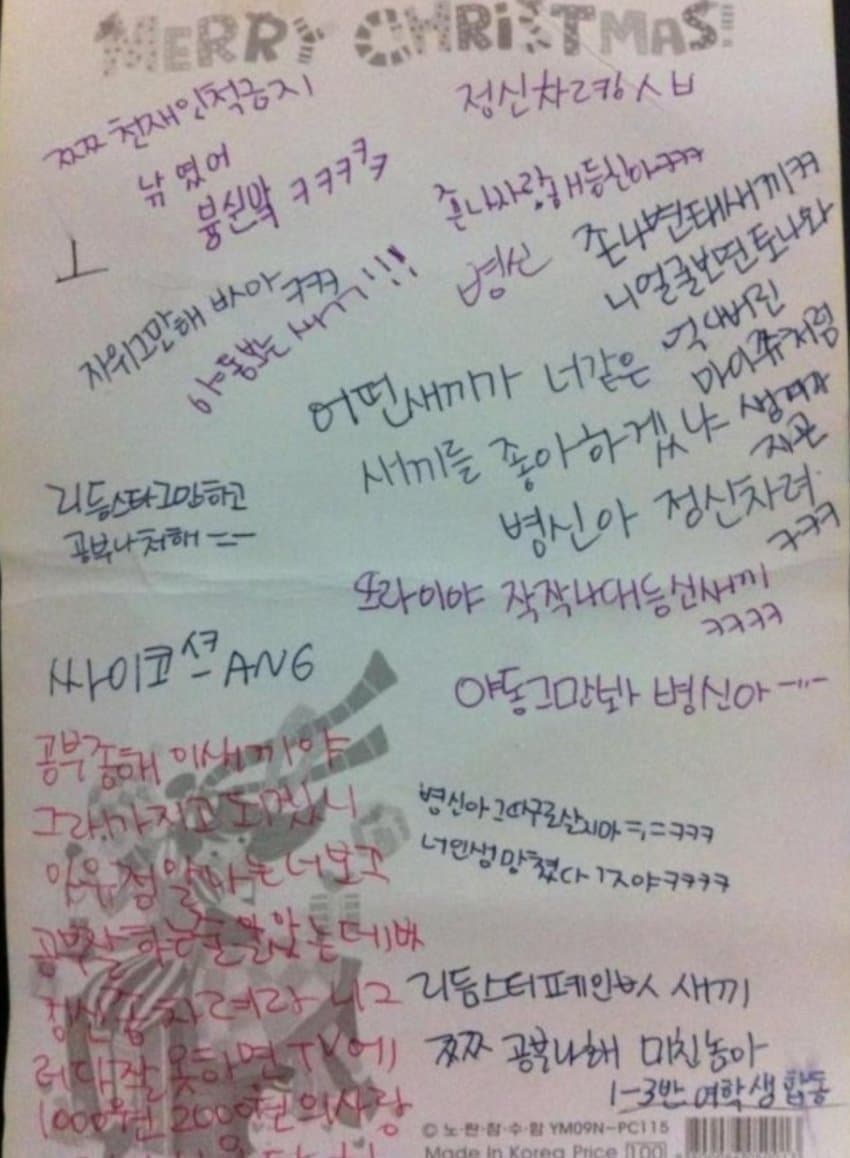 MERRY CHRISTMAS!
쯔쯔 천재인척금지
정신차려캉 ㅅㅂ
낚였어
븅신막 ㅋㅋㅋㅋㅋ
존나사랑해등신아ㅋㅋㅋ
병신
존나변태새끼ㅋㅋ
니얼굴보면토나와
ㅗ
자위그만해 ㅋㅋㅋ
야동보는 새끼!!!
어떤새끼가 너같은 새끼를 좋아하겠냐
마이쮸처럼
생겨가지곤
병신아 정신차려
ㅋㅋㅋ
리듬스타그만하고
공부나쳐해 ㅡㅡ
또라이야 작작나대등신새끼
ㅋㅋㅋㅋ
싸이코션ANG
야동그만봐 병신아ㅡㅡ
공부좀해 이새끼야
그래가지고 되겠니
병신아그따구로살지마ㅋㅋㅋ
너인생망쳤다 ㄱㅈ야ㅋㅋㅋㅋ
너보고
공부잘하는줄알았는데
정신좀차려라 니그
러다잘못하면TV에
1000원 2000원의사랑
리듬스터페인 새끼
쯔쯔 공부나해 미친놈아
1-3반 여학생 합동
© 노·란·잠·수·함 YM09N-PC115
Made In Korea Price 100